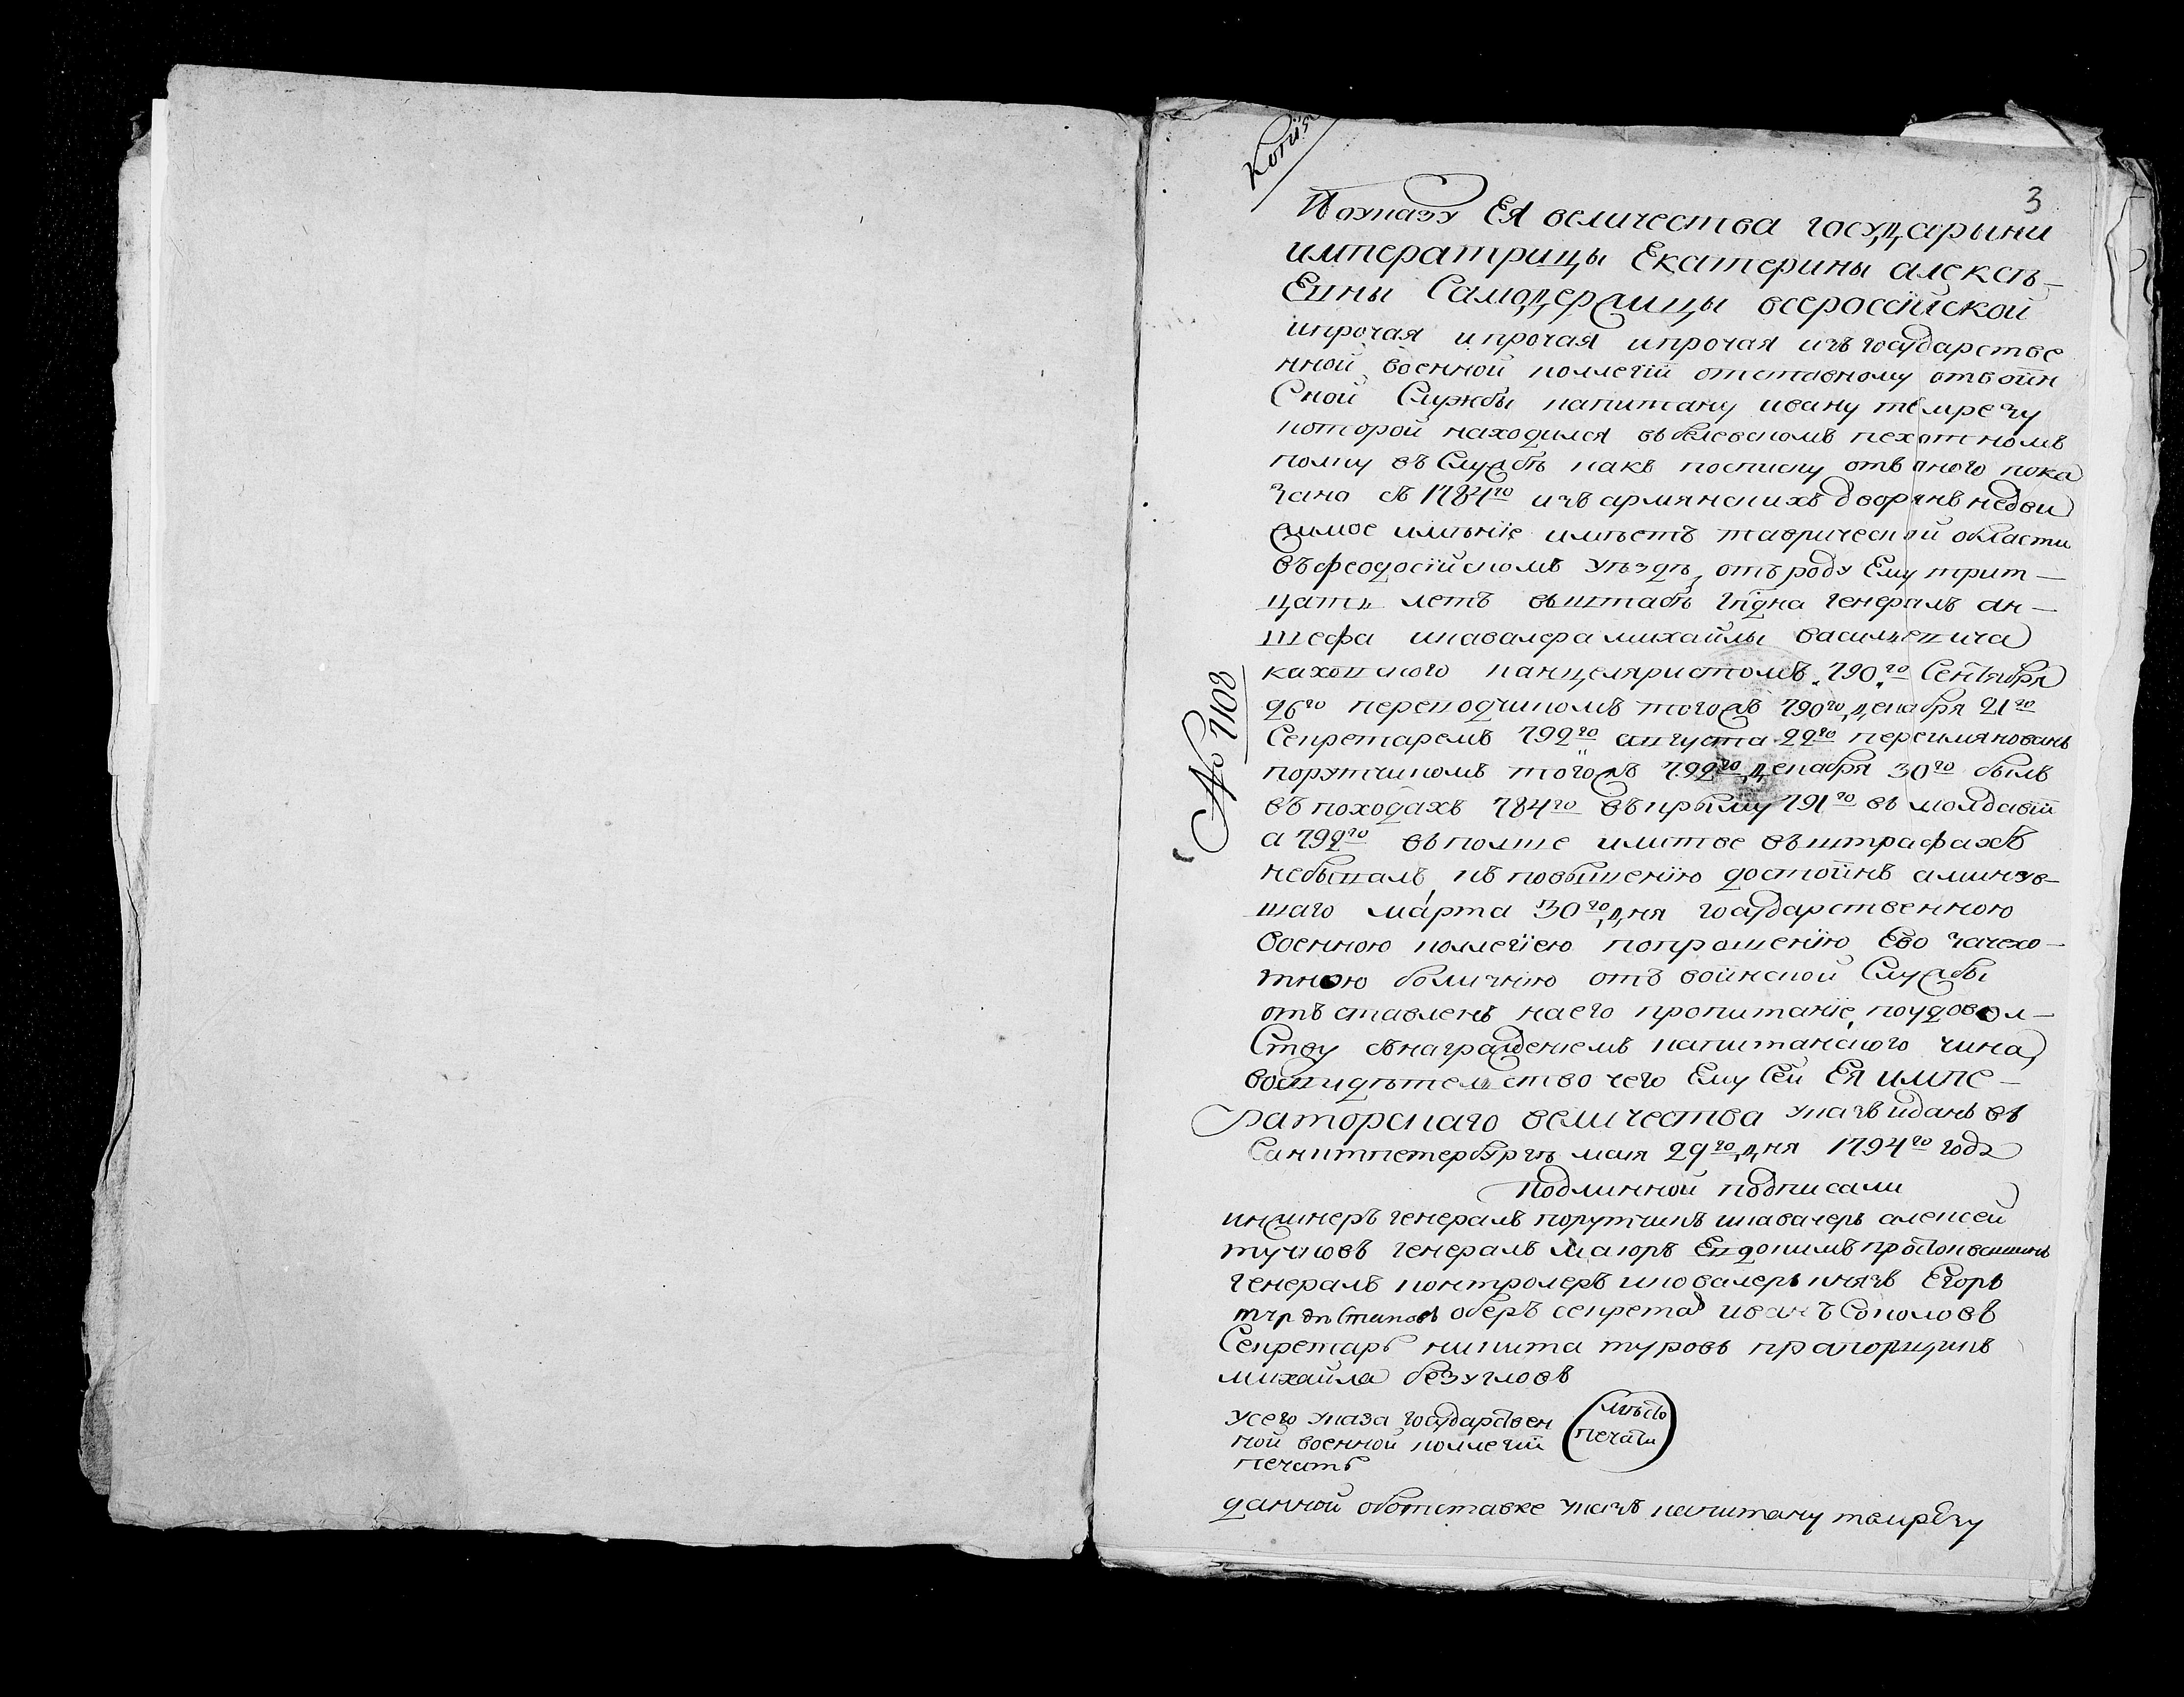 Копія
3
По указу Ея величества государыни
императрицы Екатерины алексѣ-
Евны Самодержицы всероссійской
ипрочая ипрочая ипрочая изъ государстве
нной военной коллегіи отставному отвоин
Ской Службы капитану ивану темрезу
которой находился въ белевскомъ пехотномъ
полку въ Службѣ какъ посписку отъ оного пока
зано съ 1784го изъ армянскихъ дворянъ недви
жимое имѣніе имѣетъ таврической области
въ феодосійскомъ уѣздѣ, отъ роду Ему трит-
цать летъ въ штабѣ Гдна Генералъ ан-
шефа икавалера михайлы васильевича
каховского канцеляристомъ 790го Сентября
26го переводчикомъ тогожъ 790го декабря 21го
Секретаремъ 792го августа 22го переимянованъ
порутчикомъ тогожъ 792го декабря 30го былъ
въ походахъ 784го въ крыму 791го въ молдавіи
а 792го въ полше илитве въ штрафахъ
небывалъ, къ повышенію достоинъ аминув-
шаго марта 30го дня Государственною
военною коллегіею попрошенію Ево зачехо-
тною болезнію отъ воинской Службы
отъ ставленъ наего пропитаніе, поудовол-
Ству снагражденіемъ капитанского чина,
восвидѣтельство чего Ему Сей Ея импе-
раторскаго величества указъ иданъ въ
Санктпетербургѣ маия 29го дня 1794го года
Подлинной подписали
инжинеръ генералъ порутчикъ икавалеръ алексей
тучковъ генералъ маиоръ Евдокимъ
генералъ контролеръ икавалеръ князь Егоръ
оберъ секретарь иванъ Соколовъ
Секретарь никита туровъ прапорщикъ
михайла безугловъ
усего указа государствен
ной военной коллегіи
печать
мѣсто
печати
данной оботставке указъ капитану темрезу
№ 7108